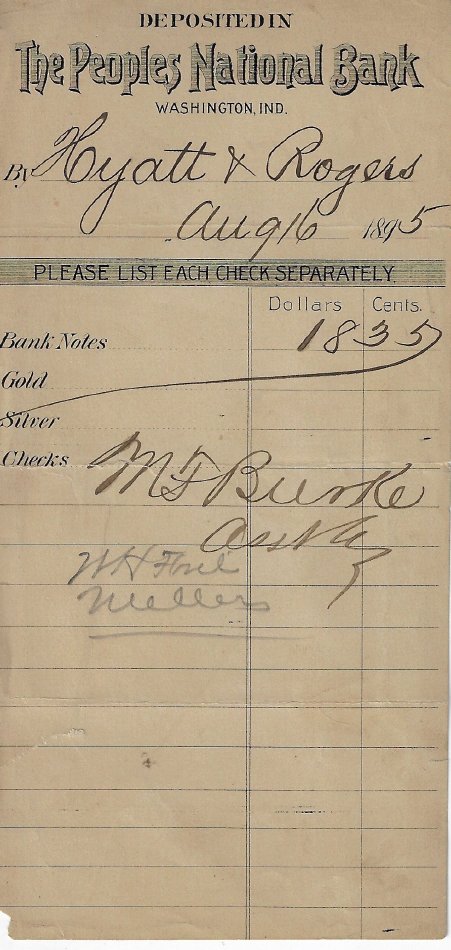 DEPOSITED IN
The Peoples National Bank
WASHINGTON, IND.
By Hyatt & Rogers
Aug 16 1895
PLEASE LIST EACH CHECK SEPARATELY.
Dollars Cents.
Bank Notes 18 35
Gold
Silver
Checks
M F Burke
W H